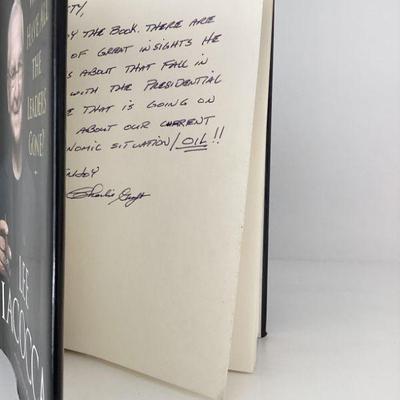 HAVE ALL
THE
LEADERS
GONE?
LEE
IACOCCA
TTY,
Y THE BOOK. THERE ARE
OF GREAT INSIGHTS HE
S ABOUT THAT FALL IN
WITH THE PRESIDENTIAL
E THAT IS GOING ON
ABOUT OUR CURRENT
NOMIC SITUATION/OIL!!
NJOY
Charlie